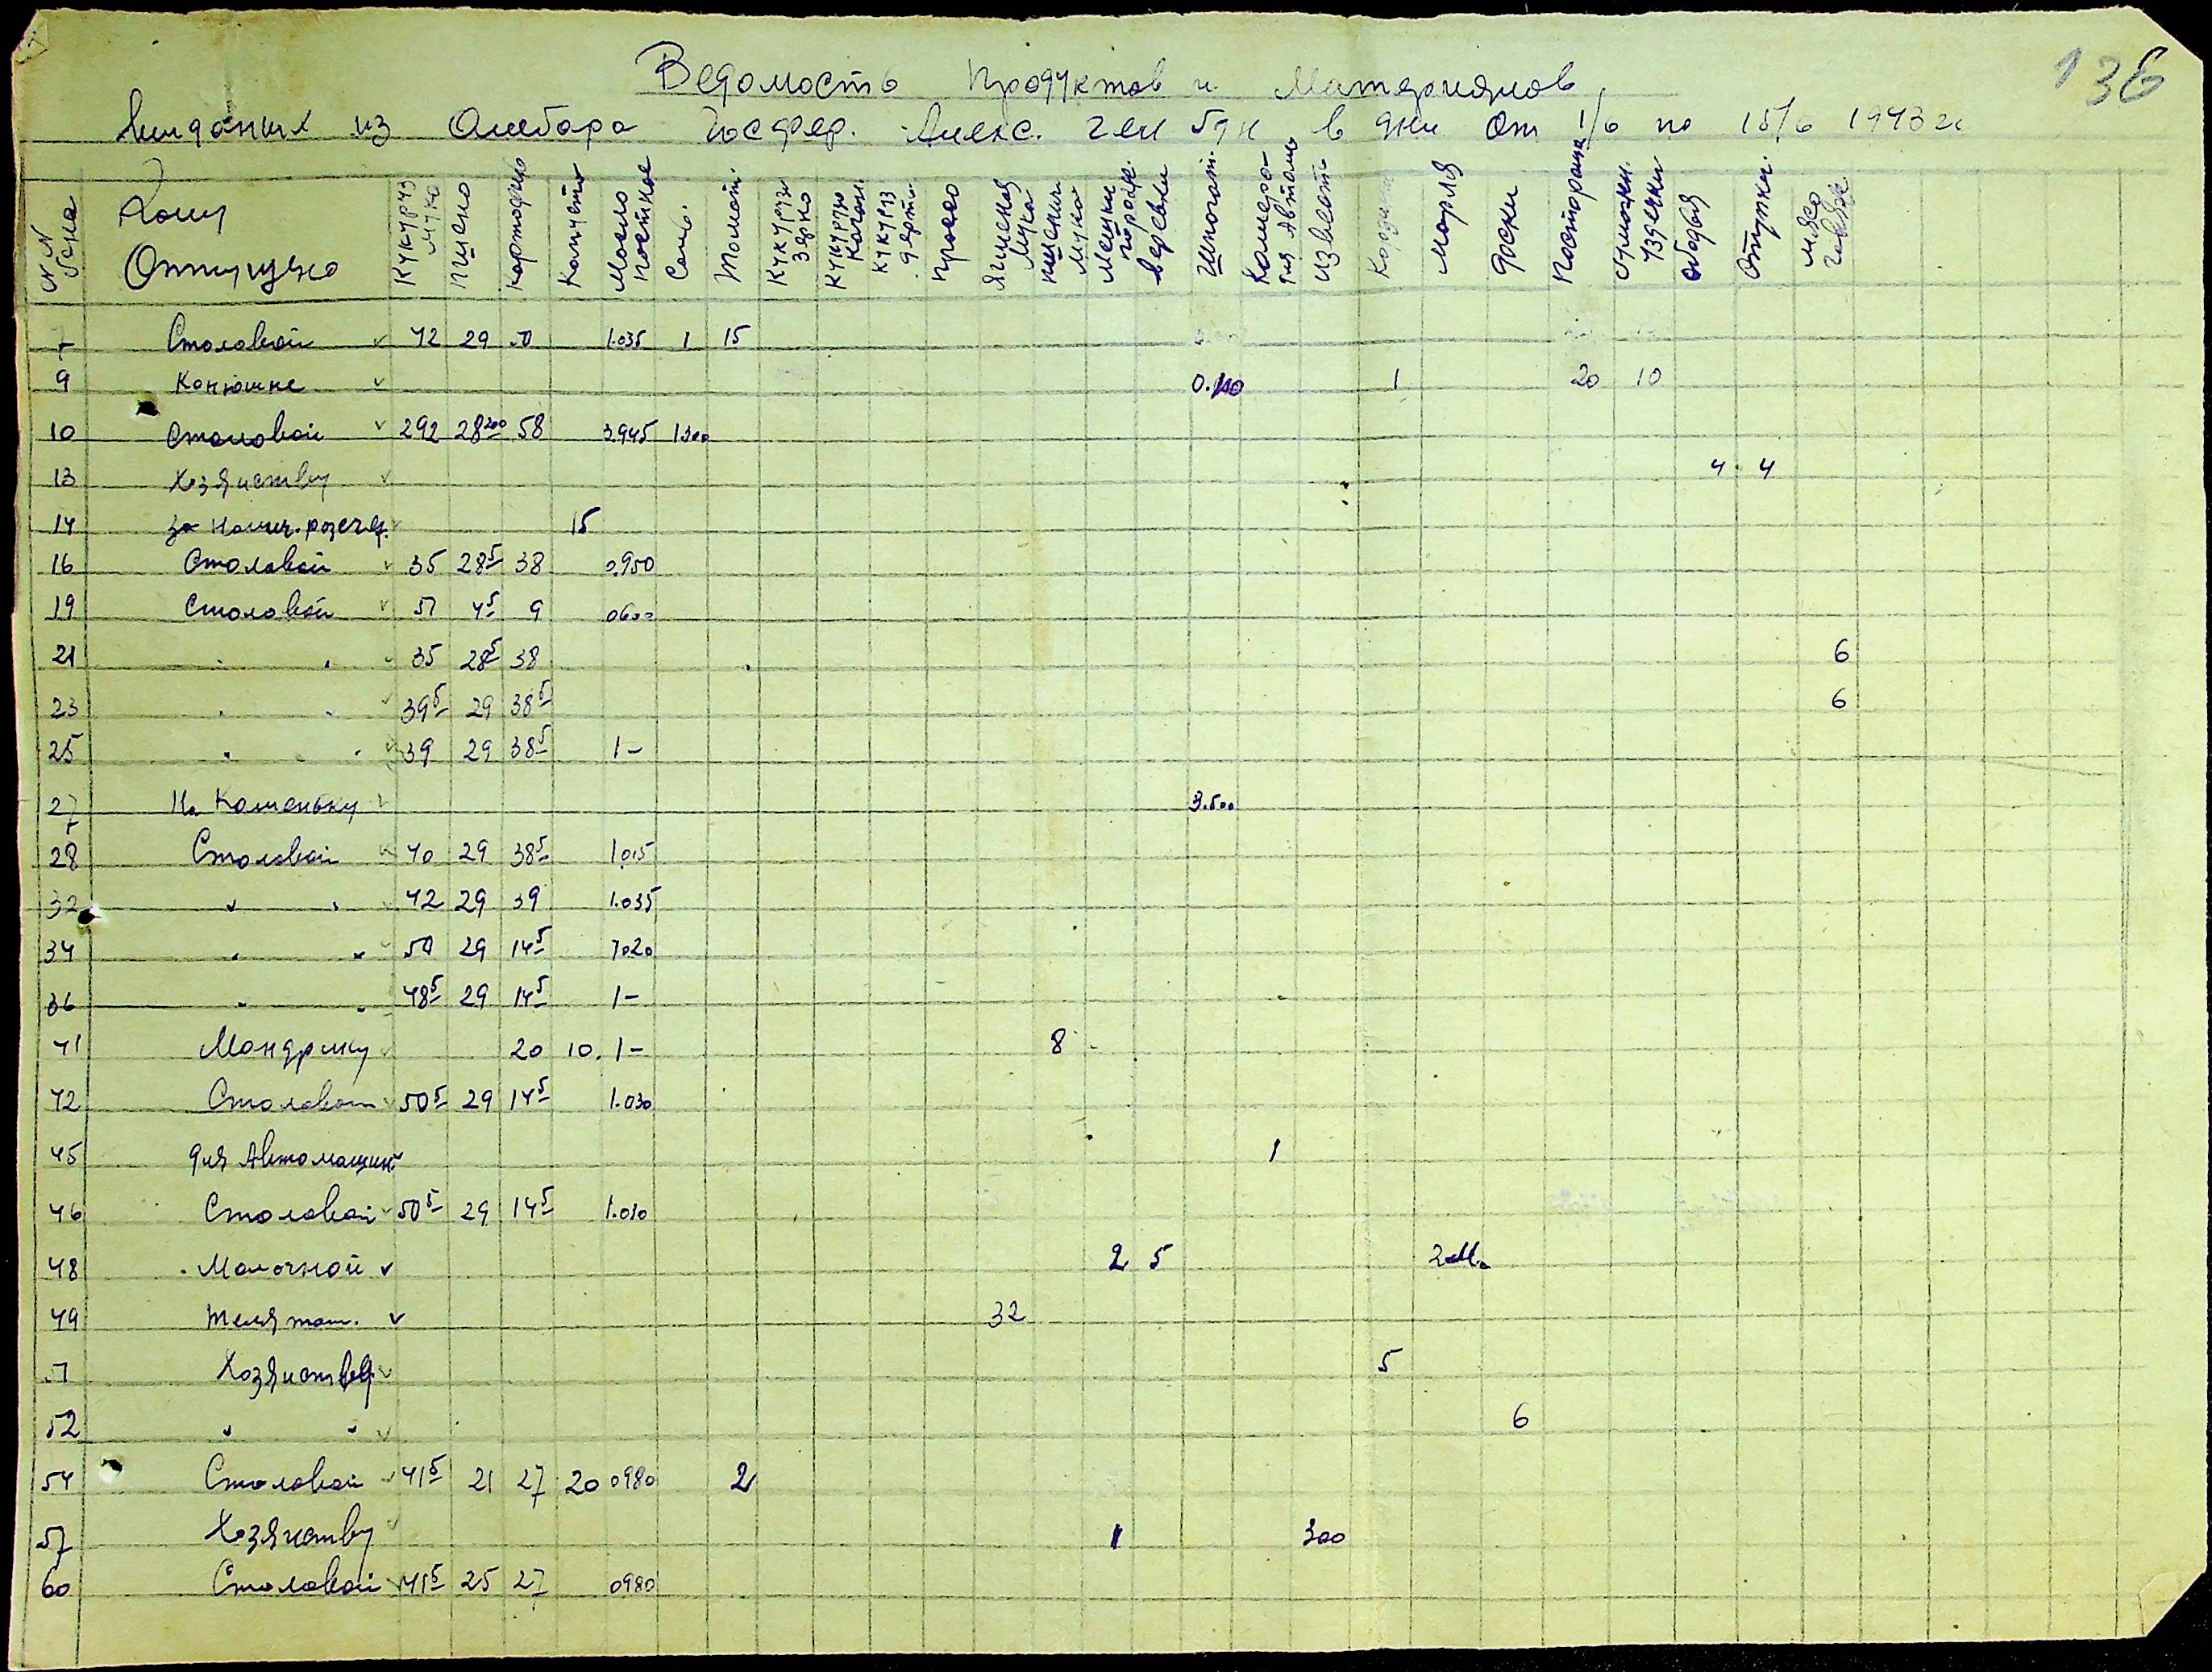 136
Ведомость Продуктов и Материялов
Выдоных из Амбара Госфер. Алекс. ген 5ди в дни От 1/6 по 15/6 1943 г
Кому Отпущено Кукуруз мука Пшено Картофль Масло постное Соль. Томат. Кукурузн зерно Кукурузн Качан. Кукуруз дерть. Просо Ячменая Мука пшенич. Мука Мешки порож. Веревки Шпогат. Камера для Автом Известь Марля Доски Постромки Уздечки Мясо
Столовой v 42 29 1.035 1 15
9 Конюшне v 1 20 10
10 Столовой v 292 28200 58 3.945 1300
13 Хозяиству v 4 4
14 15
16 Столовой v 35 285 38 0.950
19 Столовой v 51 45 9 0600
21 " " 35 285 38 6
23 " " 395 29 385 6
25 " " 39 29 385 1-
27 На Каменьку v 3.500
28 Столовой v 40 29 385 1.015
32 " " 42 29 39 1.035
34 " " 50 29 145 1020
36 " " 485 29 145 1-
41 Мандрику v 20 10. 1- 8
42 Столовой v 505 29 145 1.030
45 для Автомашин 1
46 Столовой v 505 29 145 1.030
48 Молочной v 2 5 2 м.
49 Телятам. v 32
51 Хозяиству v 5
52 " " v 6
54 Столовой v 415 21 27 20 0980 2
57 Хозяиству v 1 300
60 Столовой v 415 25 27 0980